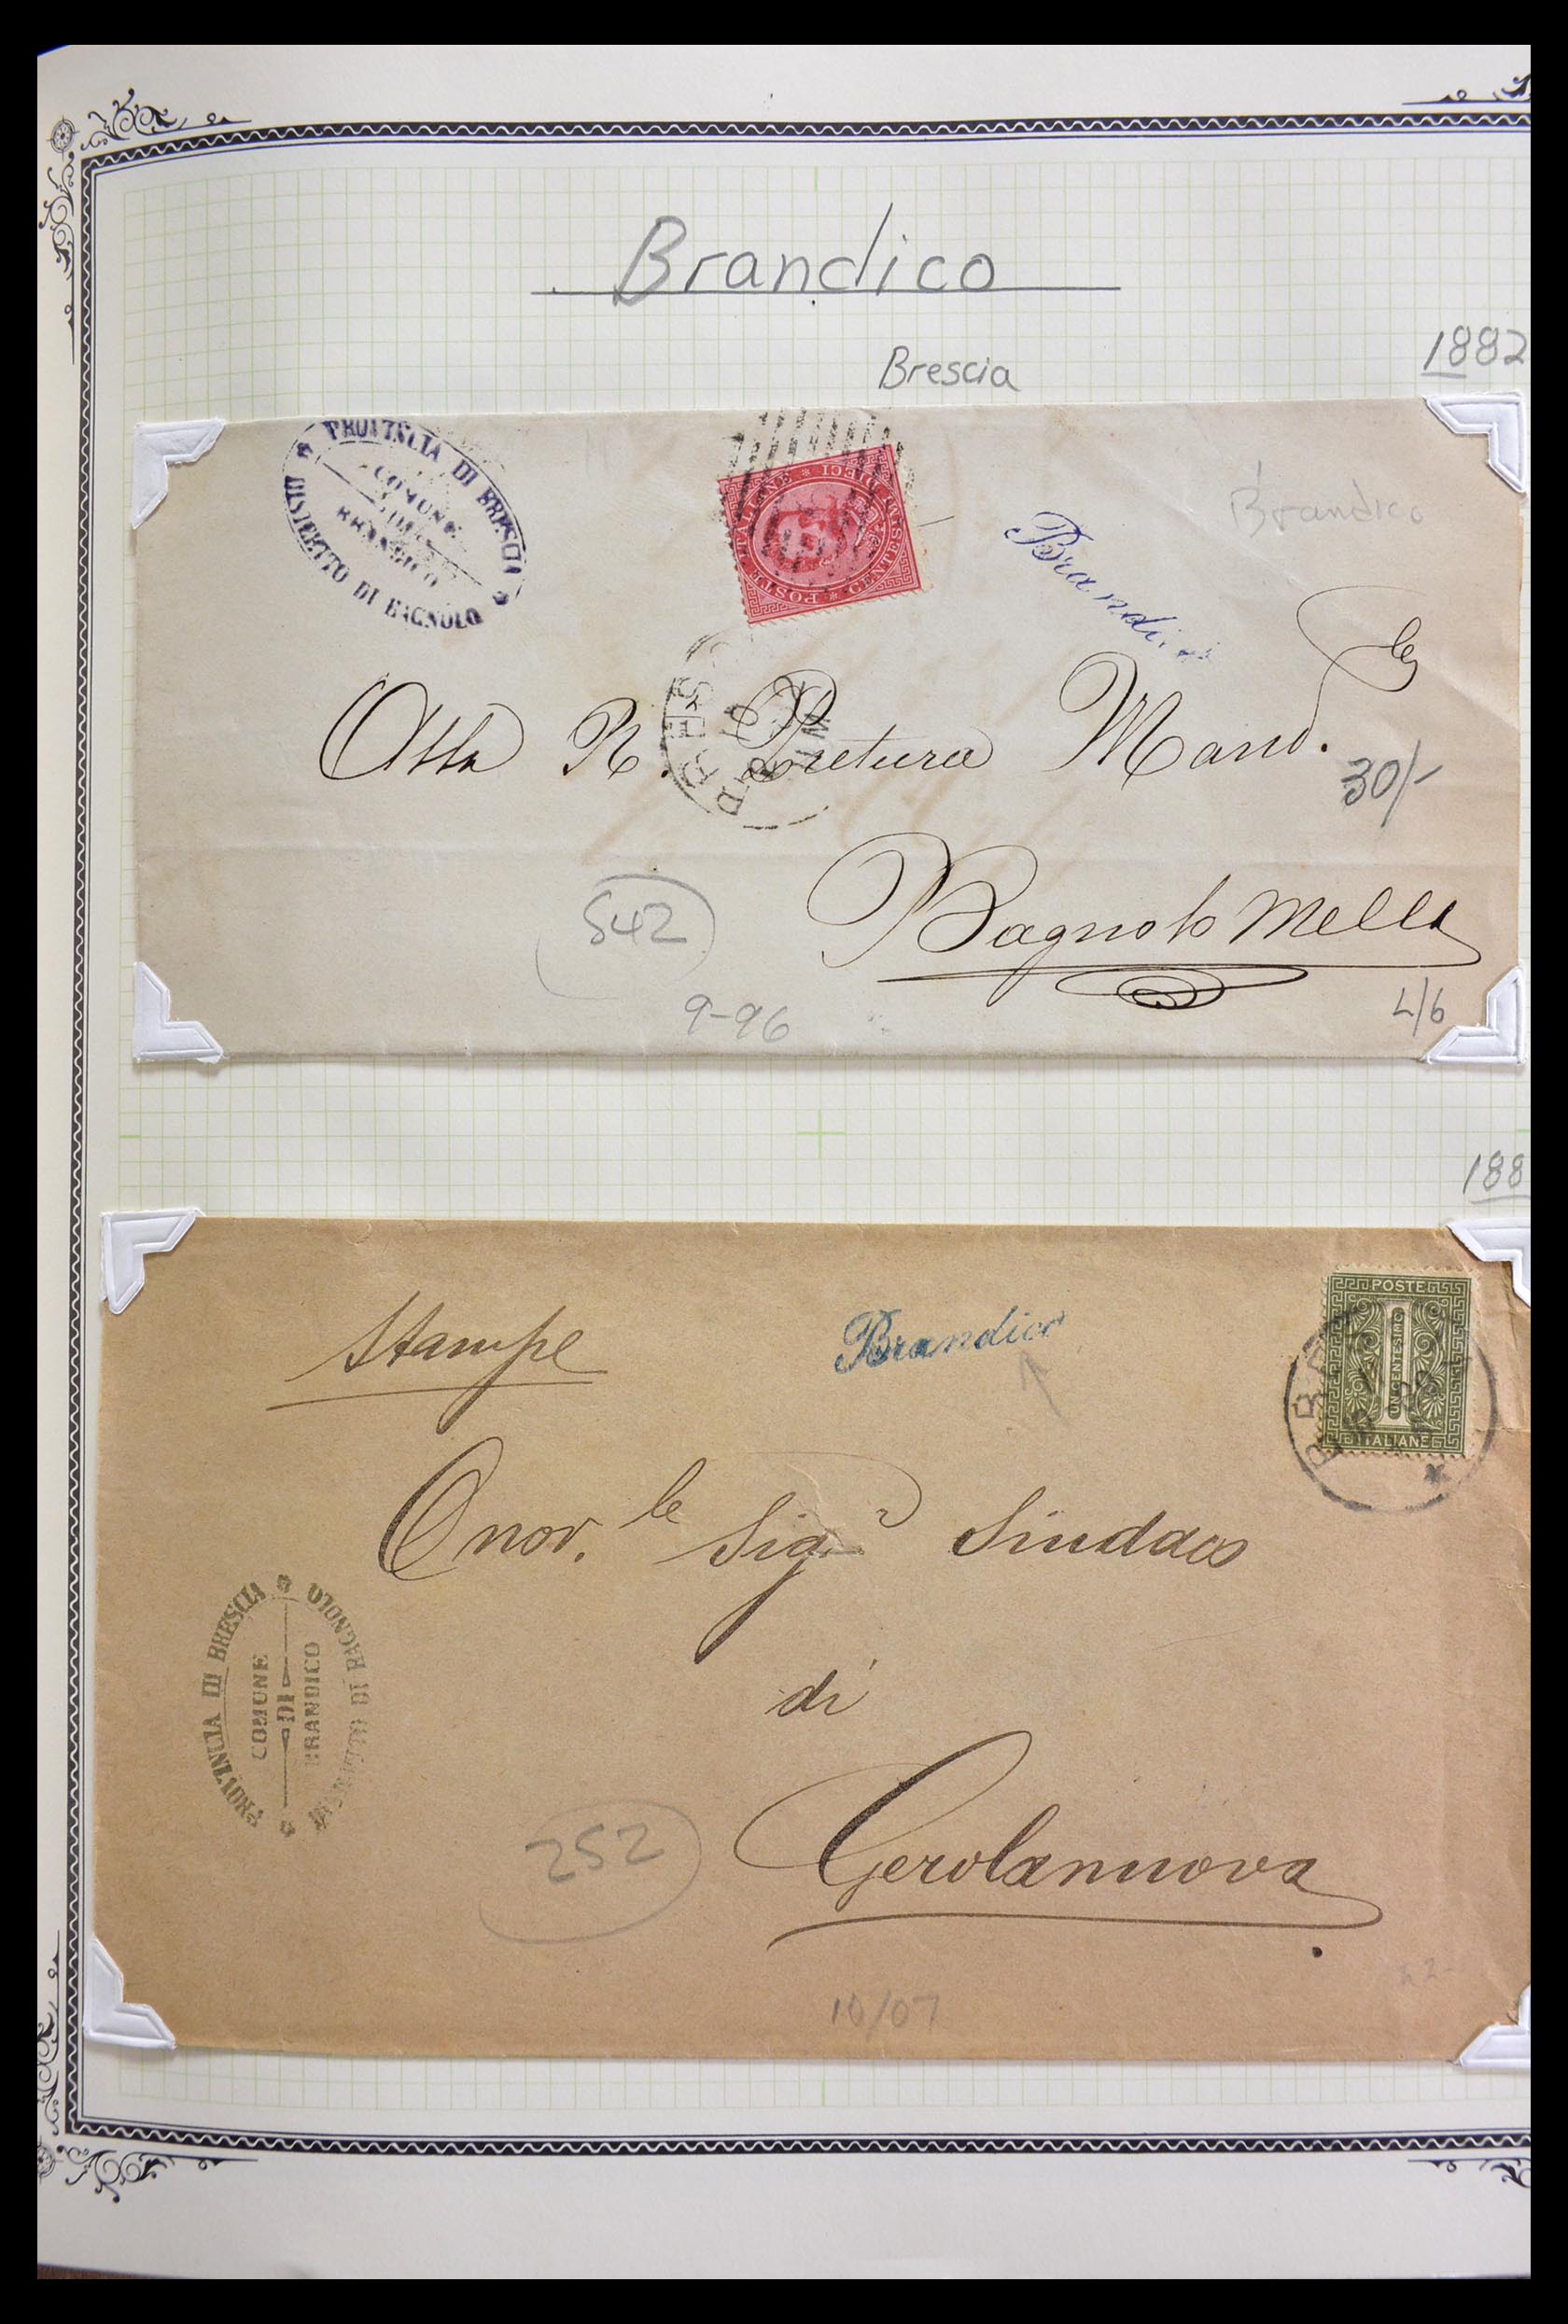 Brandico
Brescia
1882
PROVINCIA DI BRESCIA
COMUNE
DI
BRANDICO
DISTRETTO DI BAGNOLO
POSTE ITALIANE * CENTESIMI DIECI *
Brandico
Brandi
Alla R. Pretura Mand.le
30/-
Bagnolo Mella
542
9-96
L/6
188
Stampe
Brandico
POSTE
UN CENTESIMO
ITALIANE
Onor.le Sigr Sindaco
di
Gerolanuova
PROVINCIA DI BRESCIA
COMUNE
DI
BRANDICO
DISTRETTO DI BAGNOLO
252
10/07